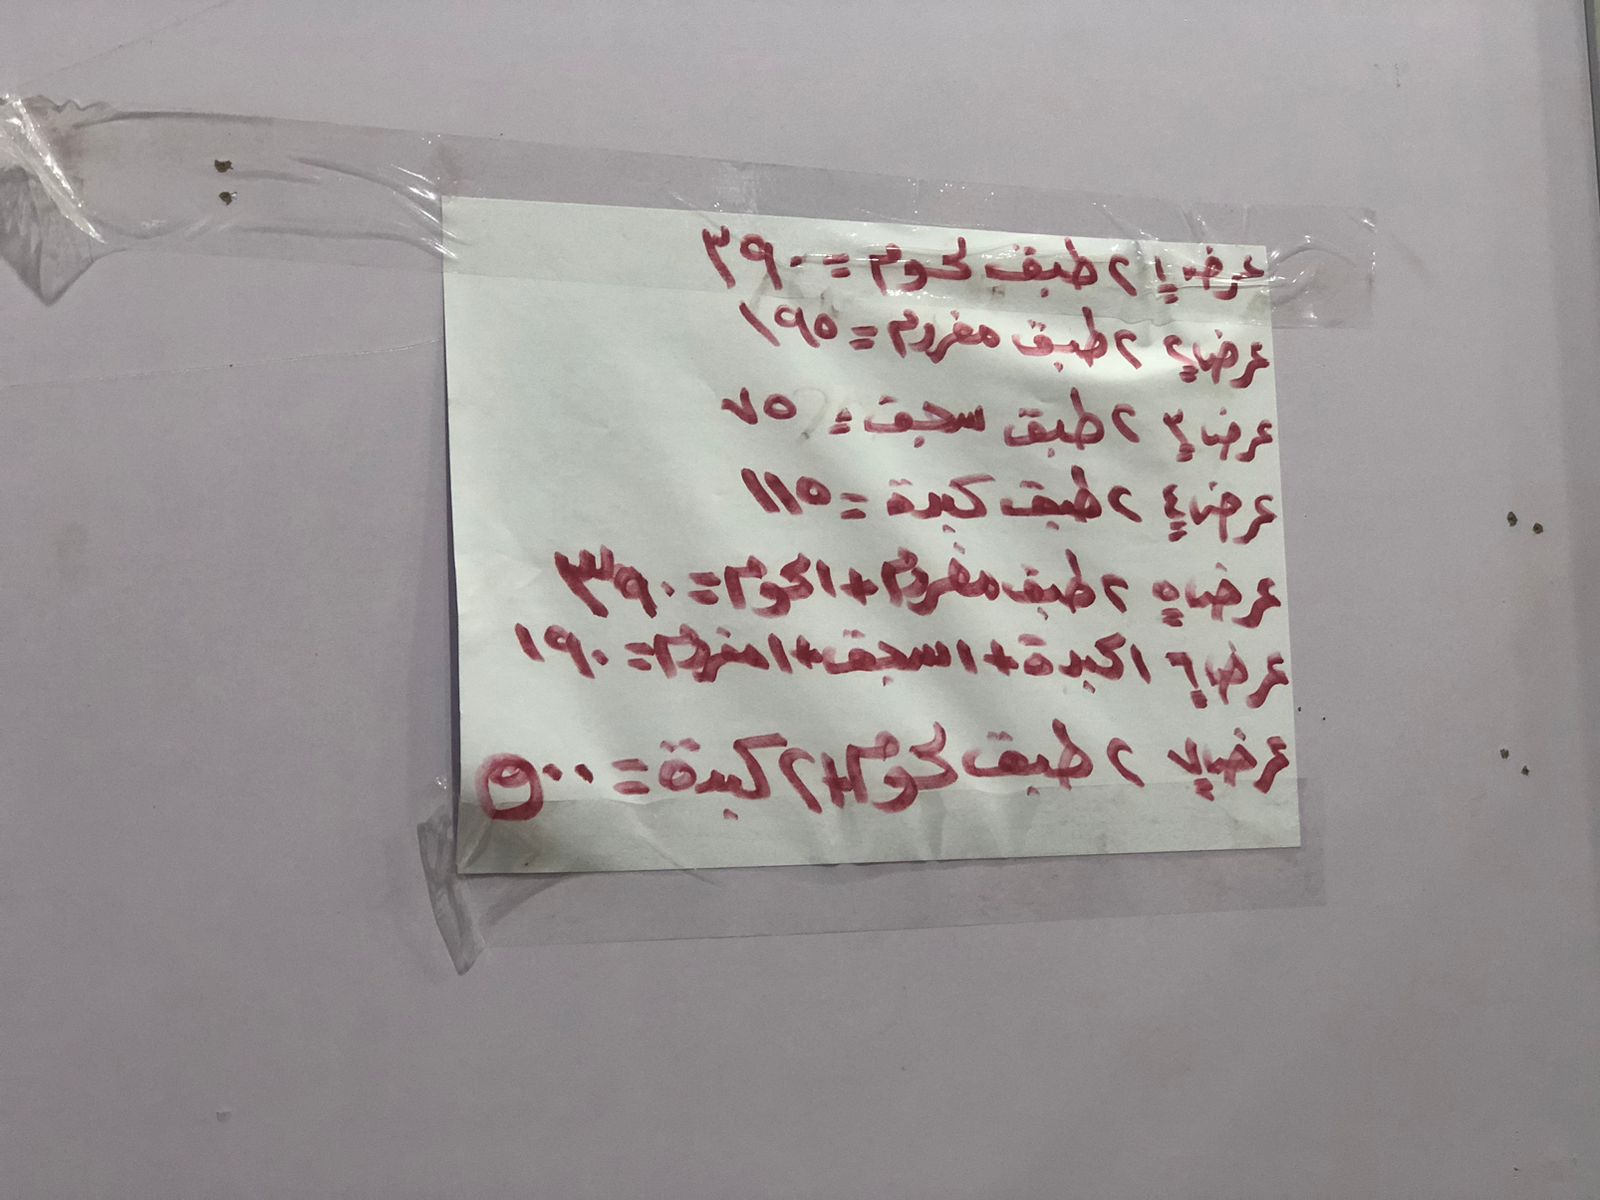 عرض ١ ٢ طبق لحوم = ٣٩٠
عرض ٢ ٢ طبق مفروم = ١٩٥
عرض ٣ ٢ طبق سجق = ٧٥
عرض ٤ ٢ طبق كبدة = ١١٥
عرض ٥ ٢ طبق مفروم + ١ لحوم = ٣٩٠
عرض ٦ ١ كبدة + ١ سجق + ١ مفروم = ١٩٠
عرض ٧ ٢ طبق لحوم + ٢ كبدة = ٥٠٠